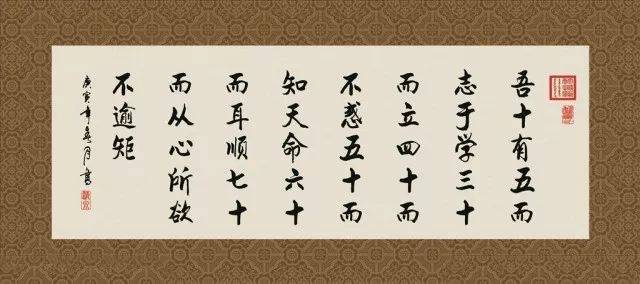 吾十有五而
志于学三十
而立四十而
不惑五十而
知天命六十
而耳顺七十
而从心所欲
不逾矩
庚寅年